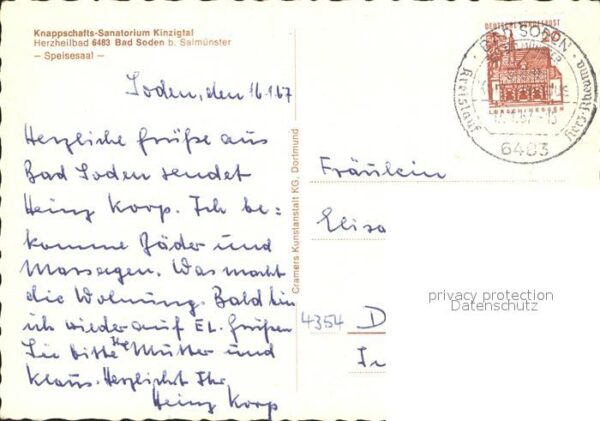 Knappschafts-Sanatorium Kinzigtal
Herzheilbad 6483 Bad Soden b. Salmünster
— Speisesaal —
Soden, den 16.1.67
Herzliche Grüße aus
Bad Soden sendet
Heinz Korp. Ich be-
komme Bäder und
Massagen. Was macht
die Wohnung. Bald bin
ich wieder auf EL. Grüßen
Sie bitte Mutter und
Klaus. Herzlichst Ihr
Heinz Korp
Cramers Kunstanstalt KG, Dortmund
DEUTSCHE BUNDESPOST
20
LORSCH/HESSEN
BAD SODEN
Kreislauf
Herz-Rheuma
6483
Fräulein
Elisa
4354 D
privacy protection
Datenschutz